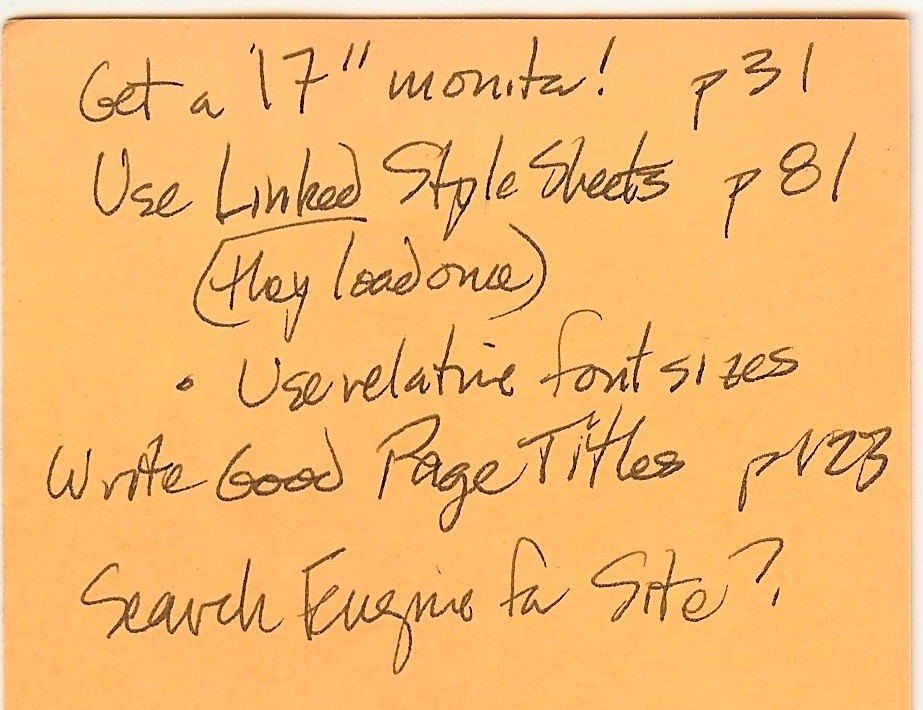 Get a 17" monitor! p 31
Use Linked Style Sheets p 81
(they load once)
• Use relative font sizes
Write Good Page Titles p 123
Search Engine for Site?